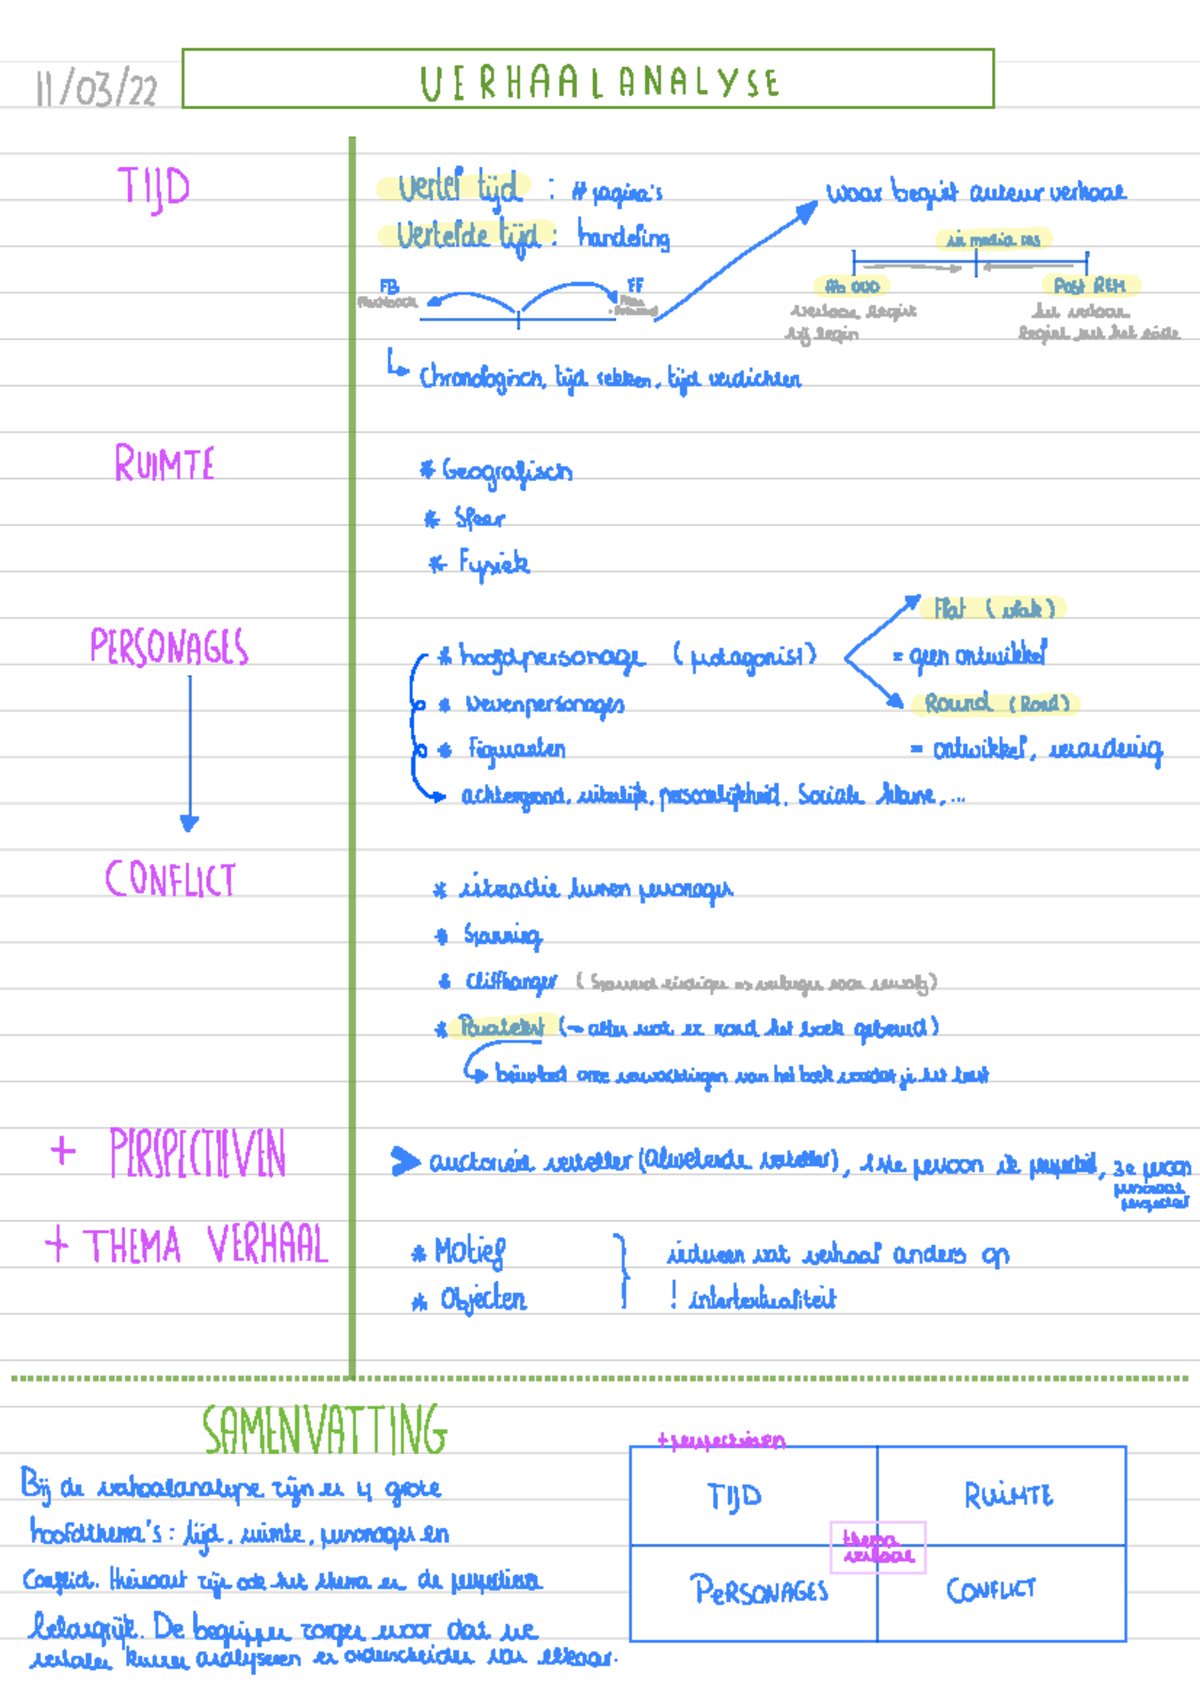 11/03/22
VERHAALANALYSE
TIJD
Vertel tijd : # pagina's
Vertelde tijd : handeling
waar begint auteur verhaal
in media res
FB
Flashback
FF
Ab ovo
verhaal begint
bij begin
Post REM
het verhaal
begint met het einde
Chronologisch, tijd rekken, tijd verdichten
RUIMTE
* Geografisch
* Sfeer
* Fysiek
PERSONAGES
* hoofdpersonage (protagonist)
Flat (vlak)
= geen ontwikkel
* Nevenpersonages
Round (Rond)
* Figuranten
= ontwikkel, verandering
achtergrond, uiterlijk, persoonlijkheid, Sociale klasse, ...
CONFLICT
* interactie tussen personages
* Spanning
* Cliffhanger
* Paratekst (→ alles wat er rond het boek gebeurd)
beïnvloed onze verwachtingen van het boek voordat je het leest
+ PERSPECTIEVEN
auctoriële verteller (Alwetende verteller), persoon ik 3e persoon
personaal
perspectief
+ THEMA VERHAAL
* Motief
* Objecten
verhaal anders op
! intertextualiteit
SAMENVATTING
Bij de verhaalanalyse zijn er 4 grote
hoofdthema's : tijd, ruimte, personages en
Conflict. Hiernaast zijn ook het thema en de perspectieven
belangrijk. De begrippen zorgen voor dat we
verhalen kunnen analyseren en onderscheiden van elkaar.
+ perspectieven
TIJD
RUIMTE
thema
verhaal
PERSONAGES
CONFLICT